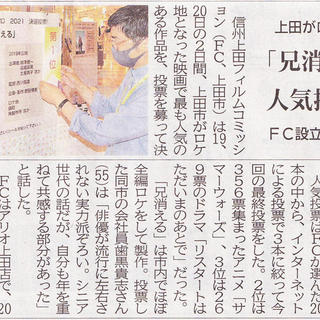 上田がロ
「兄消
人気投
FC設立
信州上田フィルムコミッシ
ョン(FC、上田市)は19、
20日の2日間、上田市がロケ
地となった映画で最も人気の
ある作品を、投票を募って決
2021 決選投票
える」
第1位
人気投票はFCが選んだ20
本の中から、インターネット
による投票で3本に絞って今
回の最終投票をした。2位は
356票集まったアニメ「サ
マーウォーズ」、3位は26
9票のドラマ「リスタートは
ただいまのあとで」だった。
「兄消える」は市内でほぼ
全編ロケをして製作。投票し
た同市の会社員歯黒貴志さん
(55)は「俳優が流行に左右さ
れない実力派ぞろい。シニア
世代の話だが、自分も年を重
ねて共感する部分があった」
と話した。
FCはアリオ上田店で、20